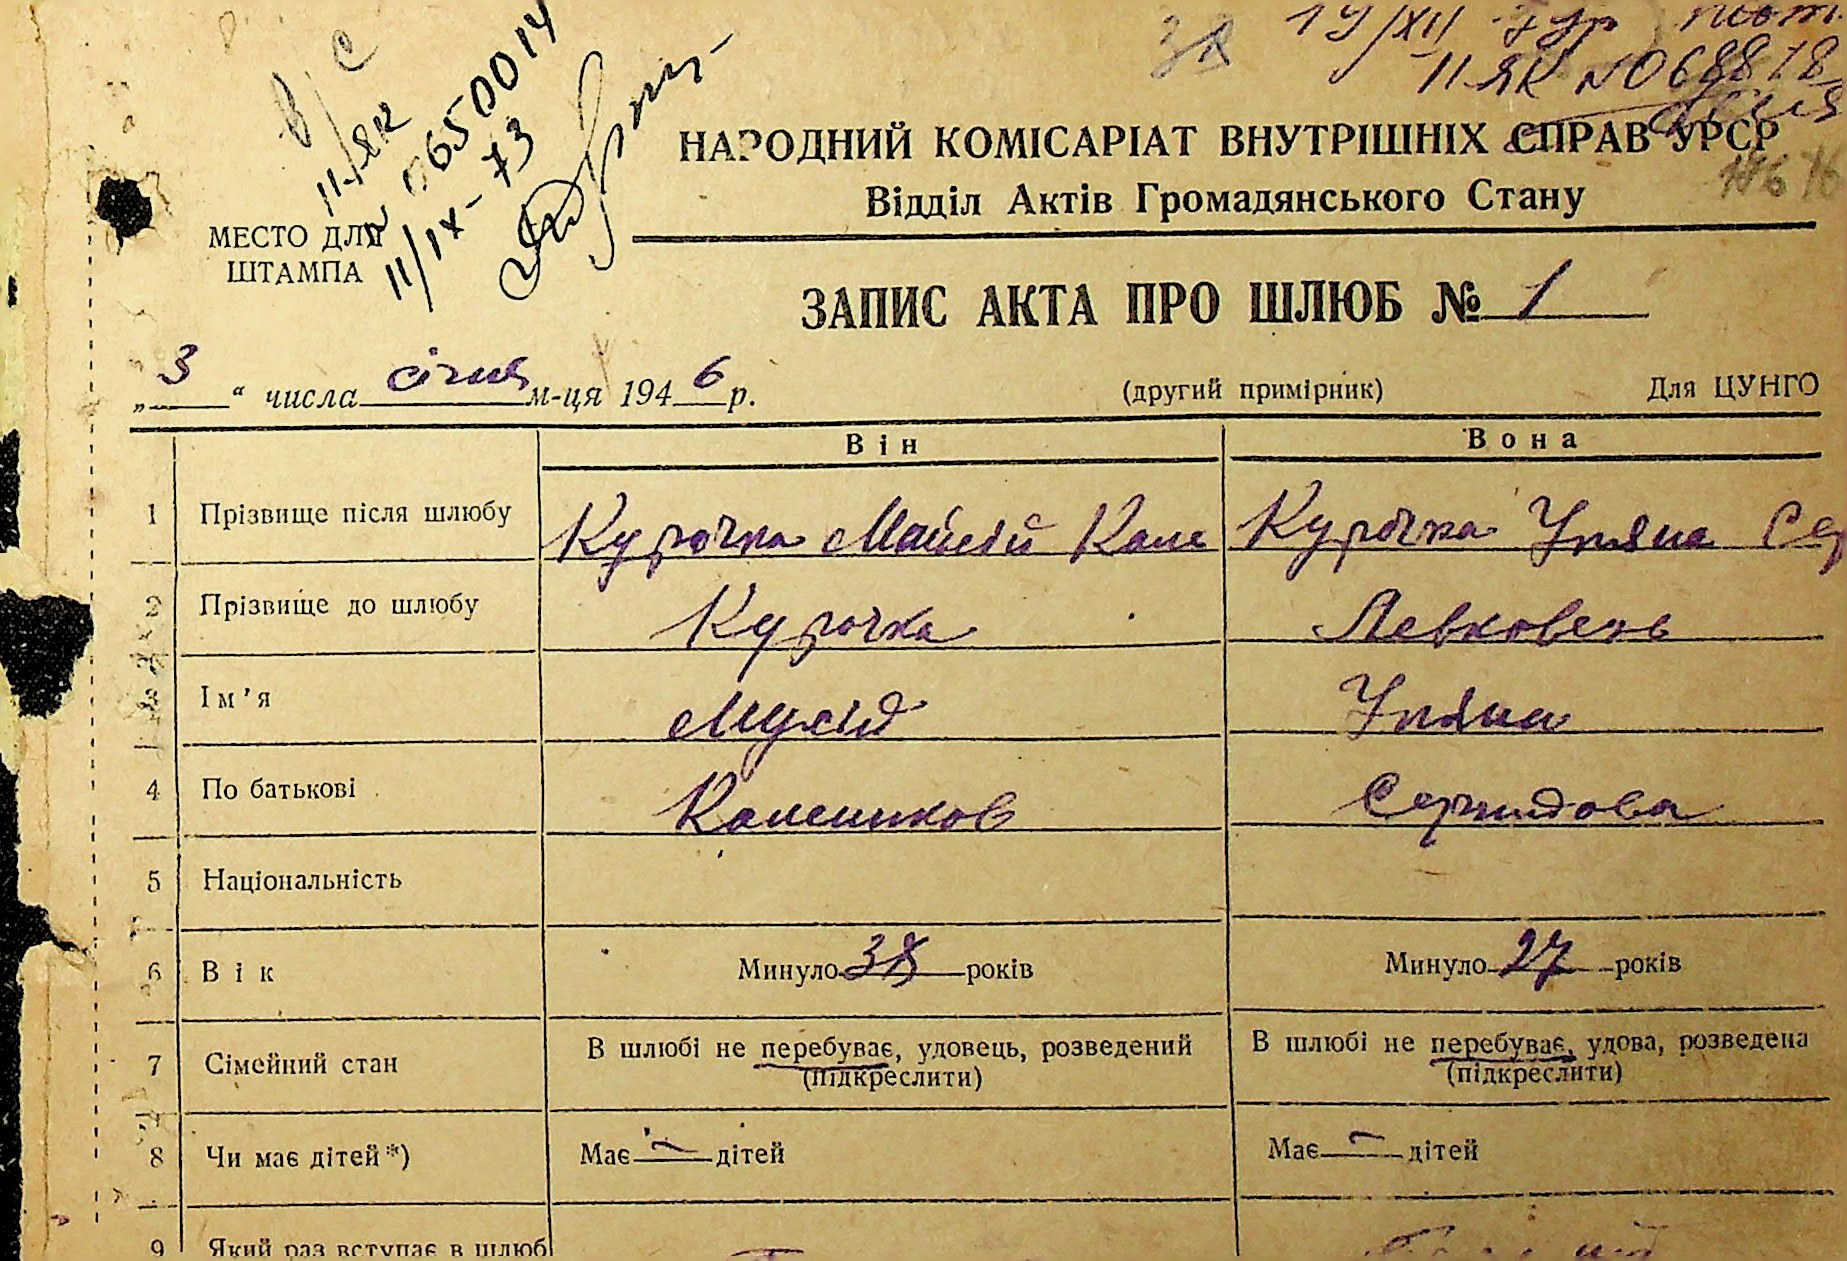 В/С
II-ЯК
№ 0650014
11/IX-73
38
II ЯК № 068818
НАРОДНИЙ КОМІСАРІАТ ВНУТРІШНІХ СПРАВ УРСР
Відділ Актів Громадянського Стану
МЕСТО ДЛЯ
ШТАМПА
ЗАПИС АКТА ПРО ШЛЮБ № 1
„ 3 “ числа січня м-ця 194 6 р.
(другий примірник)
Для ЦУНГО
Він
Вона
1 Прізвище після шлюбу Курочка Кале Курочка Уляна Сер
2 Прізвище до шлюбу Курочка Левковень
3 Ім'я Уляна
4 По батькові
5 Національність
6 Вік Минуло 38 років Минуло 27 років
7 Сімейний стан В шлюбі не перебуває, удовець, розведений В шлюбі не перебуває, удова, розведена
(підкреслити) (підкреслити)
8 Чи має дітей*) Має — дітей Має — дітей
9 Який раз вступає в шлюб